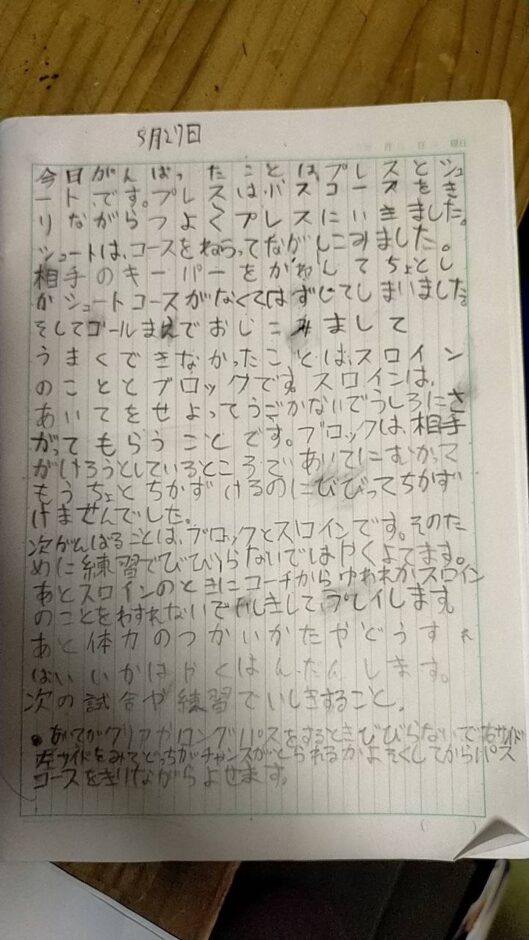 9月27日
今日がんばったことは、プレスとシュ
ート、です。プレスはパスコースをき
りながらつよくプレスにいきました。
シュートは、コースをねらってながしこみました。
相手のキーパーをがわんてちょとし
かシュートコースがなくてはずしてしまいました。
そしてゴールまえでおしこみまして
うまくできなかったことは、スロイン
のこととブロックです。スロインは、
あいてをせよってうごかないでうしろにさ
がってもらうことです。ブロックは、相手
がけろうとしているところであいてにむかって
もうちょとちかずけるのにびびってちかず
けませんでした。
次がんばることは、ブロックとスロインです。そのた
めに練習でびびらないではやくよてます。
あとスロインのときにコーチからゆわれたスロイン
のことをわすれないでいしきしてプレイします。
あと体力のつかいかたやどうすれ
ばいいかはやくはんだんします。
次の試合や練習でいしきすること。
●あいてがクリアやロングパスをするときびびらないで右サイド
左サイドをみてどっちがチャンスがとられるかよそくしてからパス
コースをきりながらよせます。